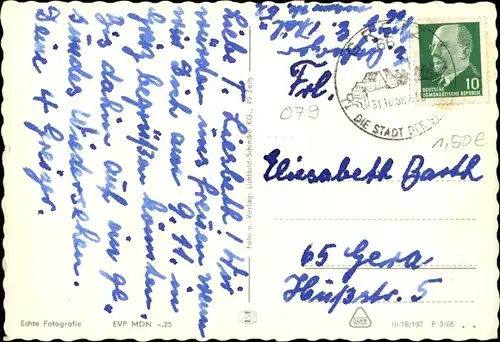 Liebe T. Liesbeth! Wir
würden uns freuen wenn
wir Dich am 9.11. in
Greiz begrüßen könnten.
Bis dahin auf ein ge-
sundes Wiedersehen.
Deine 4 Greizer.
Foto u. Verlag: Lichtbild-Schincke KG,
Echte Fotografie
EVP MDN -.25
31.10.66
DIE STADT DER
DEUTSCHE
DEMOKRATISCHE REPUBLIK
10
079
1,50€
Frl.
Elisabeth Barth
65 Gera
Hußstr. 5
III/18/197 P 3/66